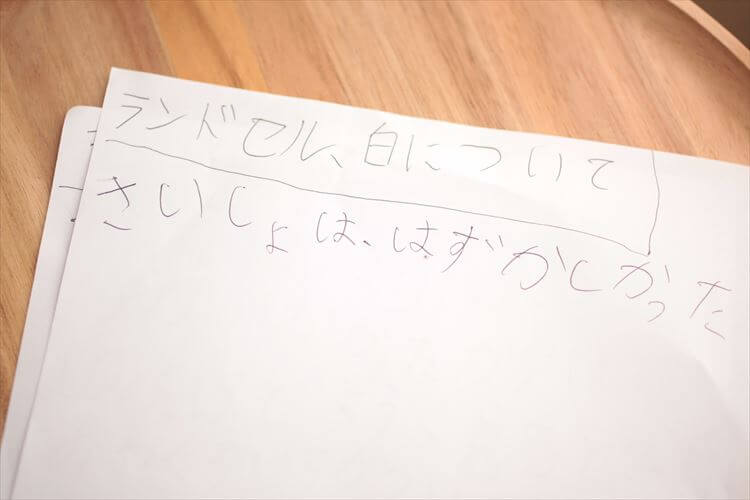 ランドセル、白について
さいしょは、はずかしかった